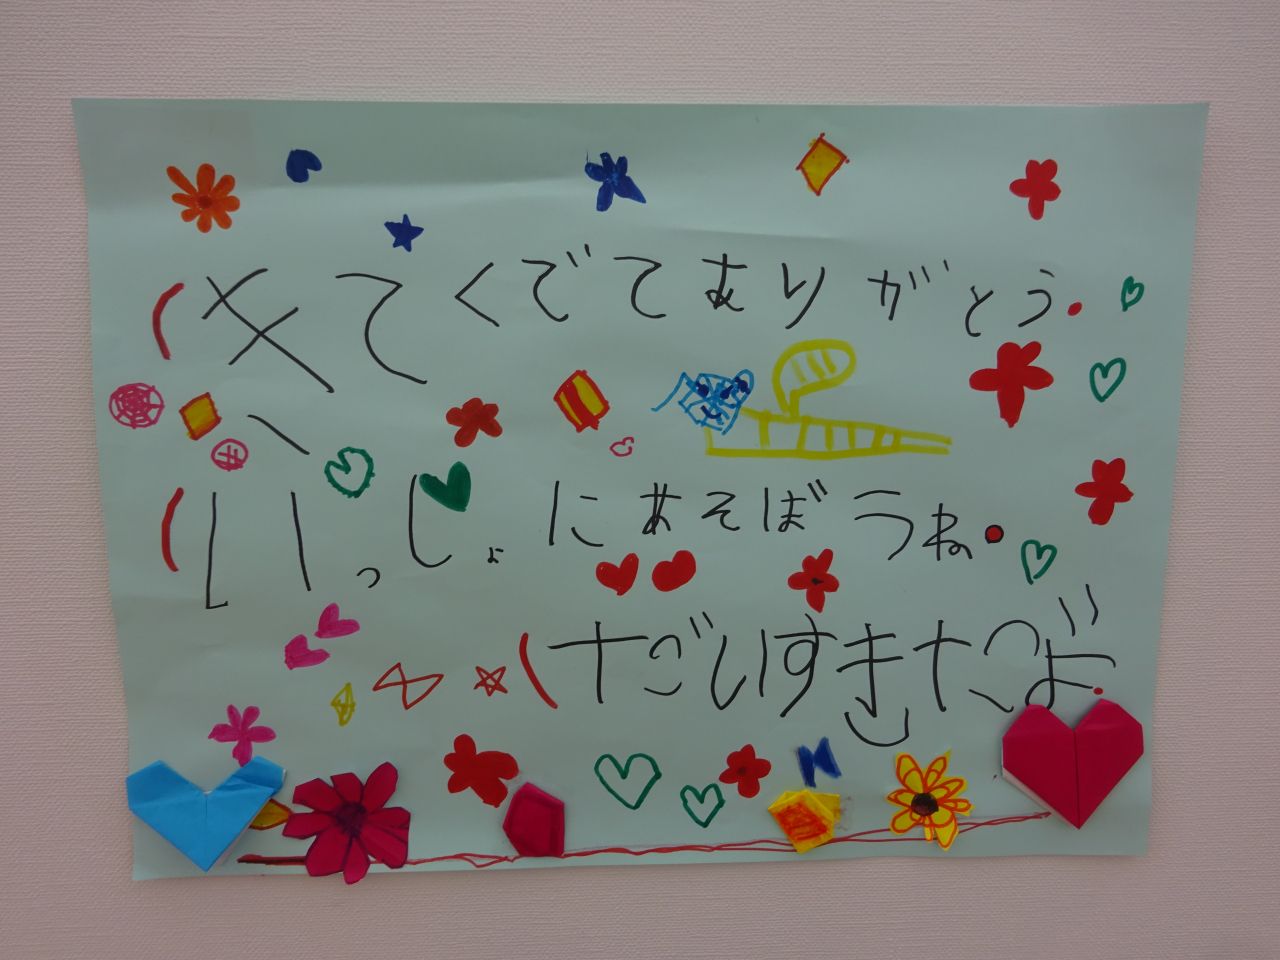 きてくでてありがとう.
いっしょにあそばうね.
だいすきだよ.